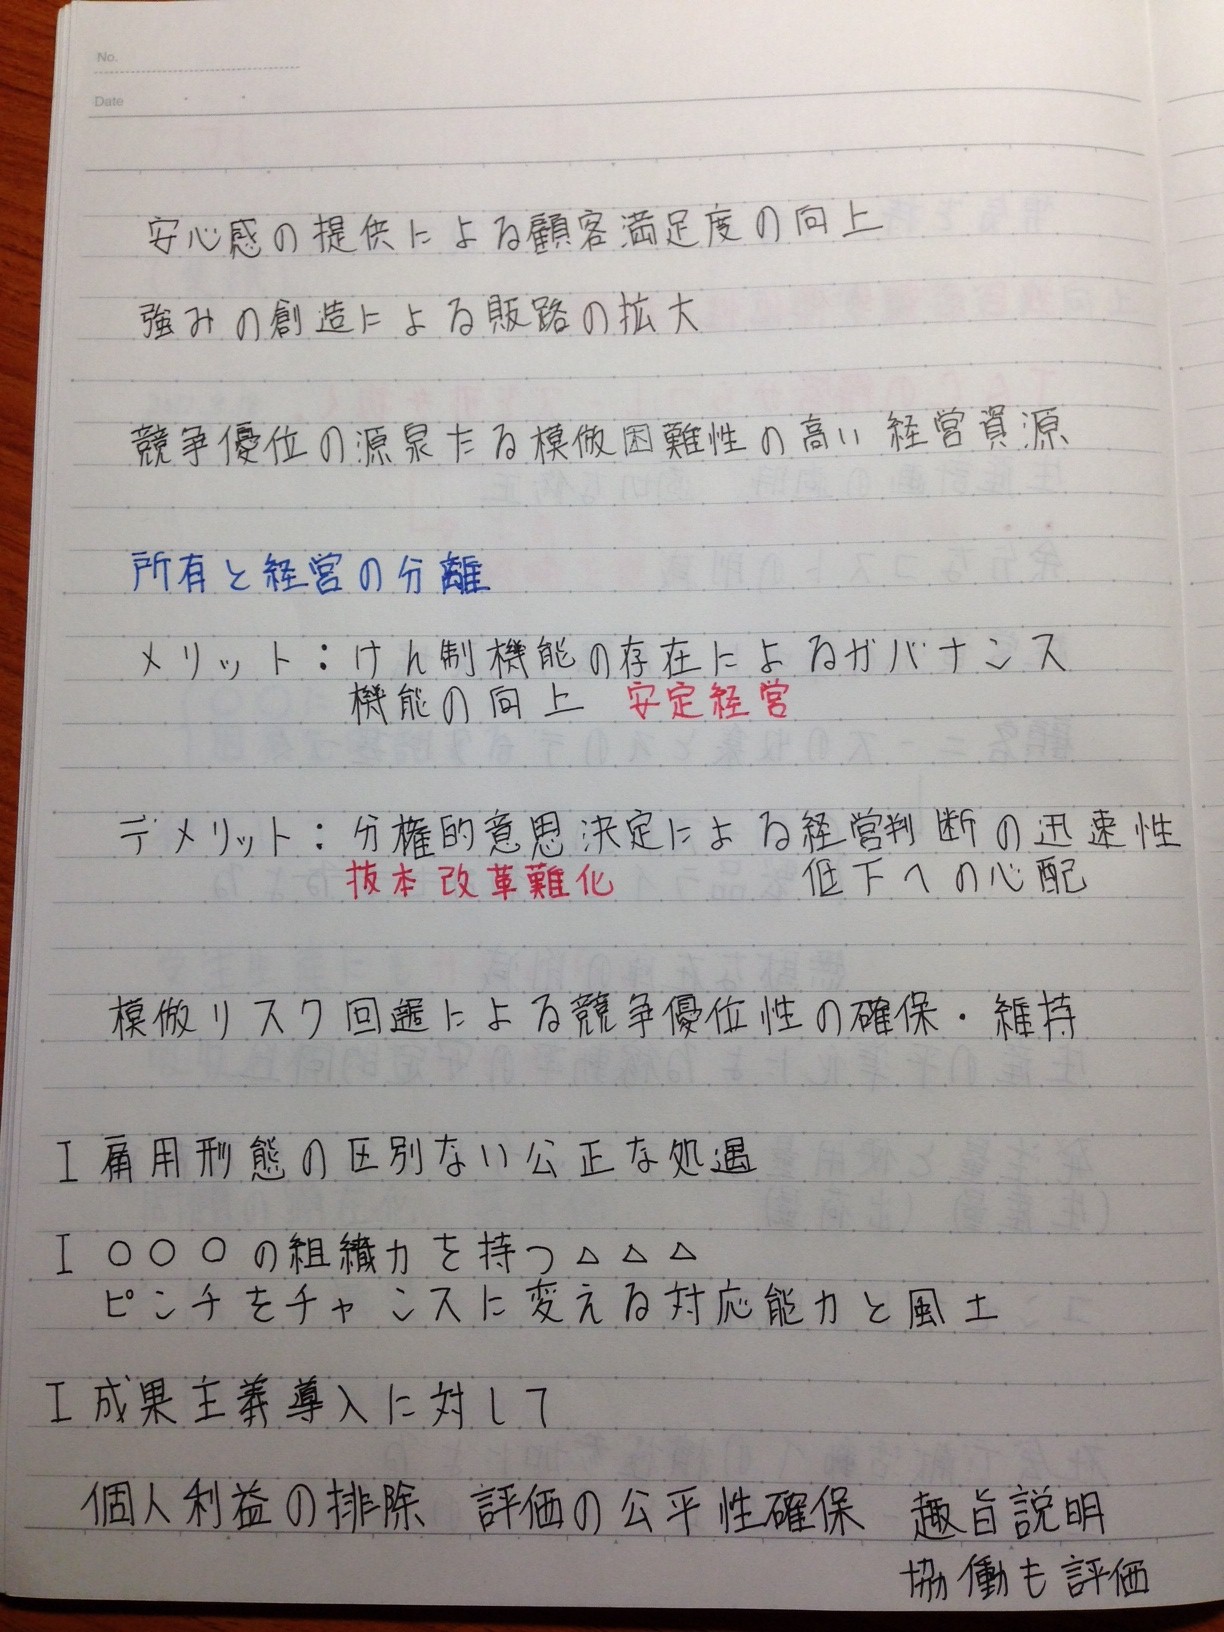 No.
Date
安心感の提供による顧客満足度の向上
強みの創造による販路の拡大
競争優位の源泉たる模倣困難性の高い経営資源
所有と経営の分離
メリット：けん制機能の存在によるガバナンス
機能の向上 安定経営
デメリット：分権的意思決定による経営判断の迅速性
抜本改革難化 低下への心配
模倣リスク回避による競争優位性の確保・維持
I 雇用形態の区別ない公正な処遇
I ○○○の組織力を持つ△△△
ピンチをチャンスに変える対応能力と風土
I 成果主義導入に対して
個人利益の排除 評価の公平性確保 趣旨説明
協働も評価